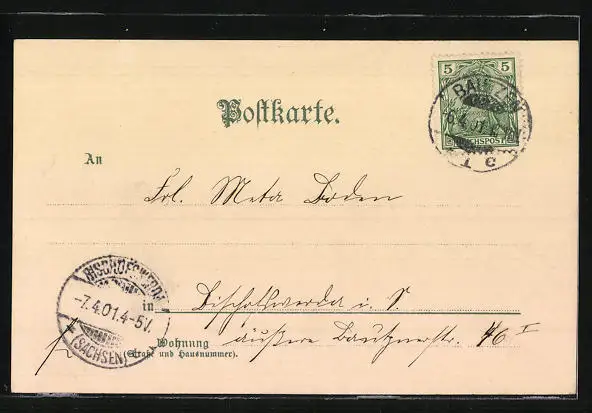 5 5
REICHSPOST
BAUTZEN
6.4.01.
1 c
Postkarte.
An
Frl. Meta Boden
BISCHOFSWERDA
-7.4.01.4-5V.
(SACHSEN)
in Bischofswerda i. S.
Wohnung
(Straße und Hausnummer).
äußere Bautznerstr. 46 I